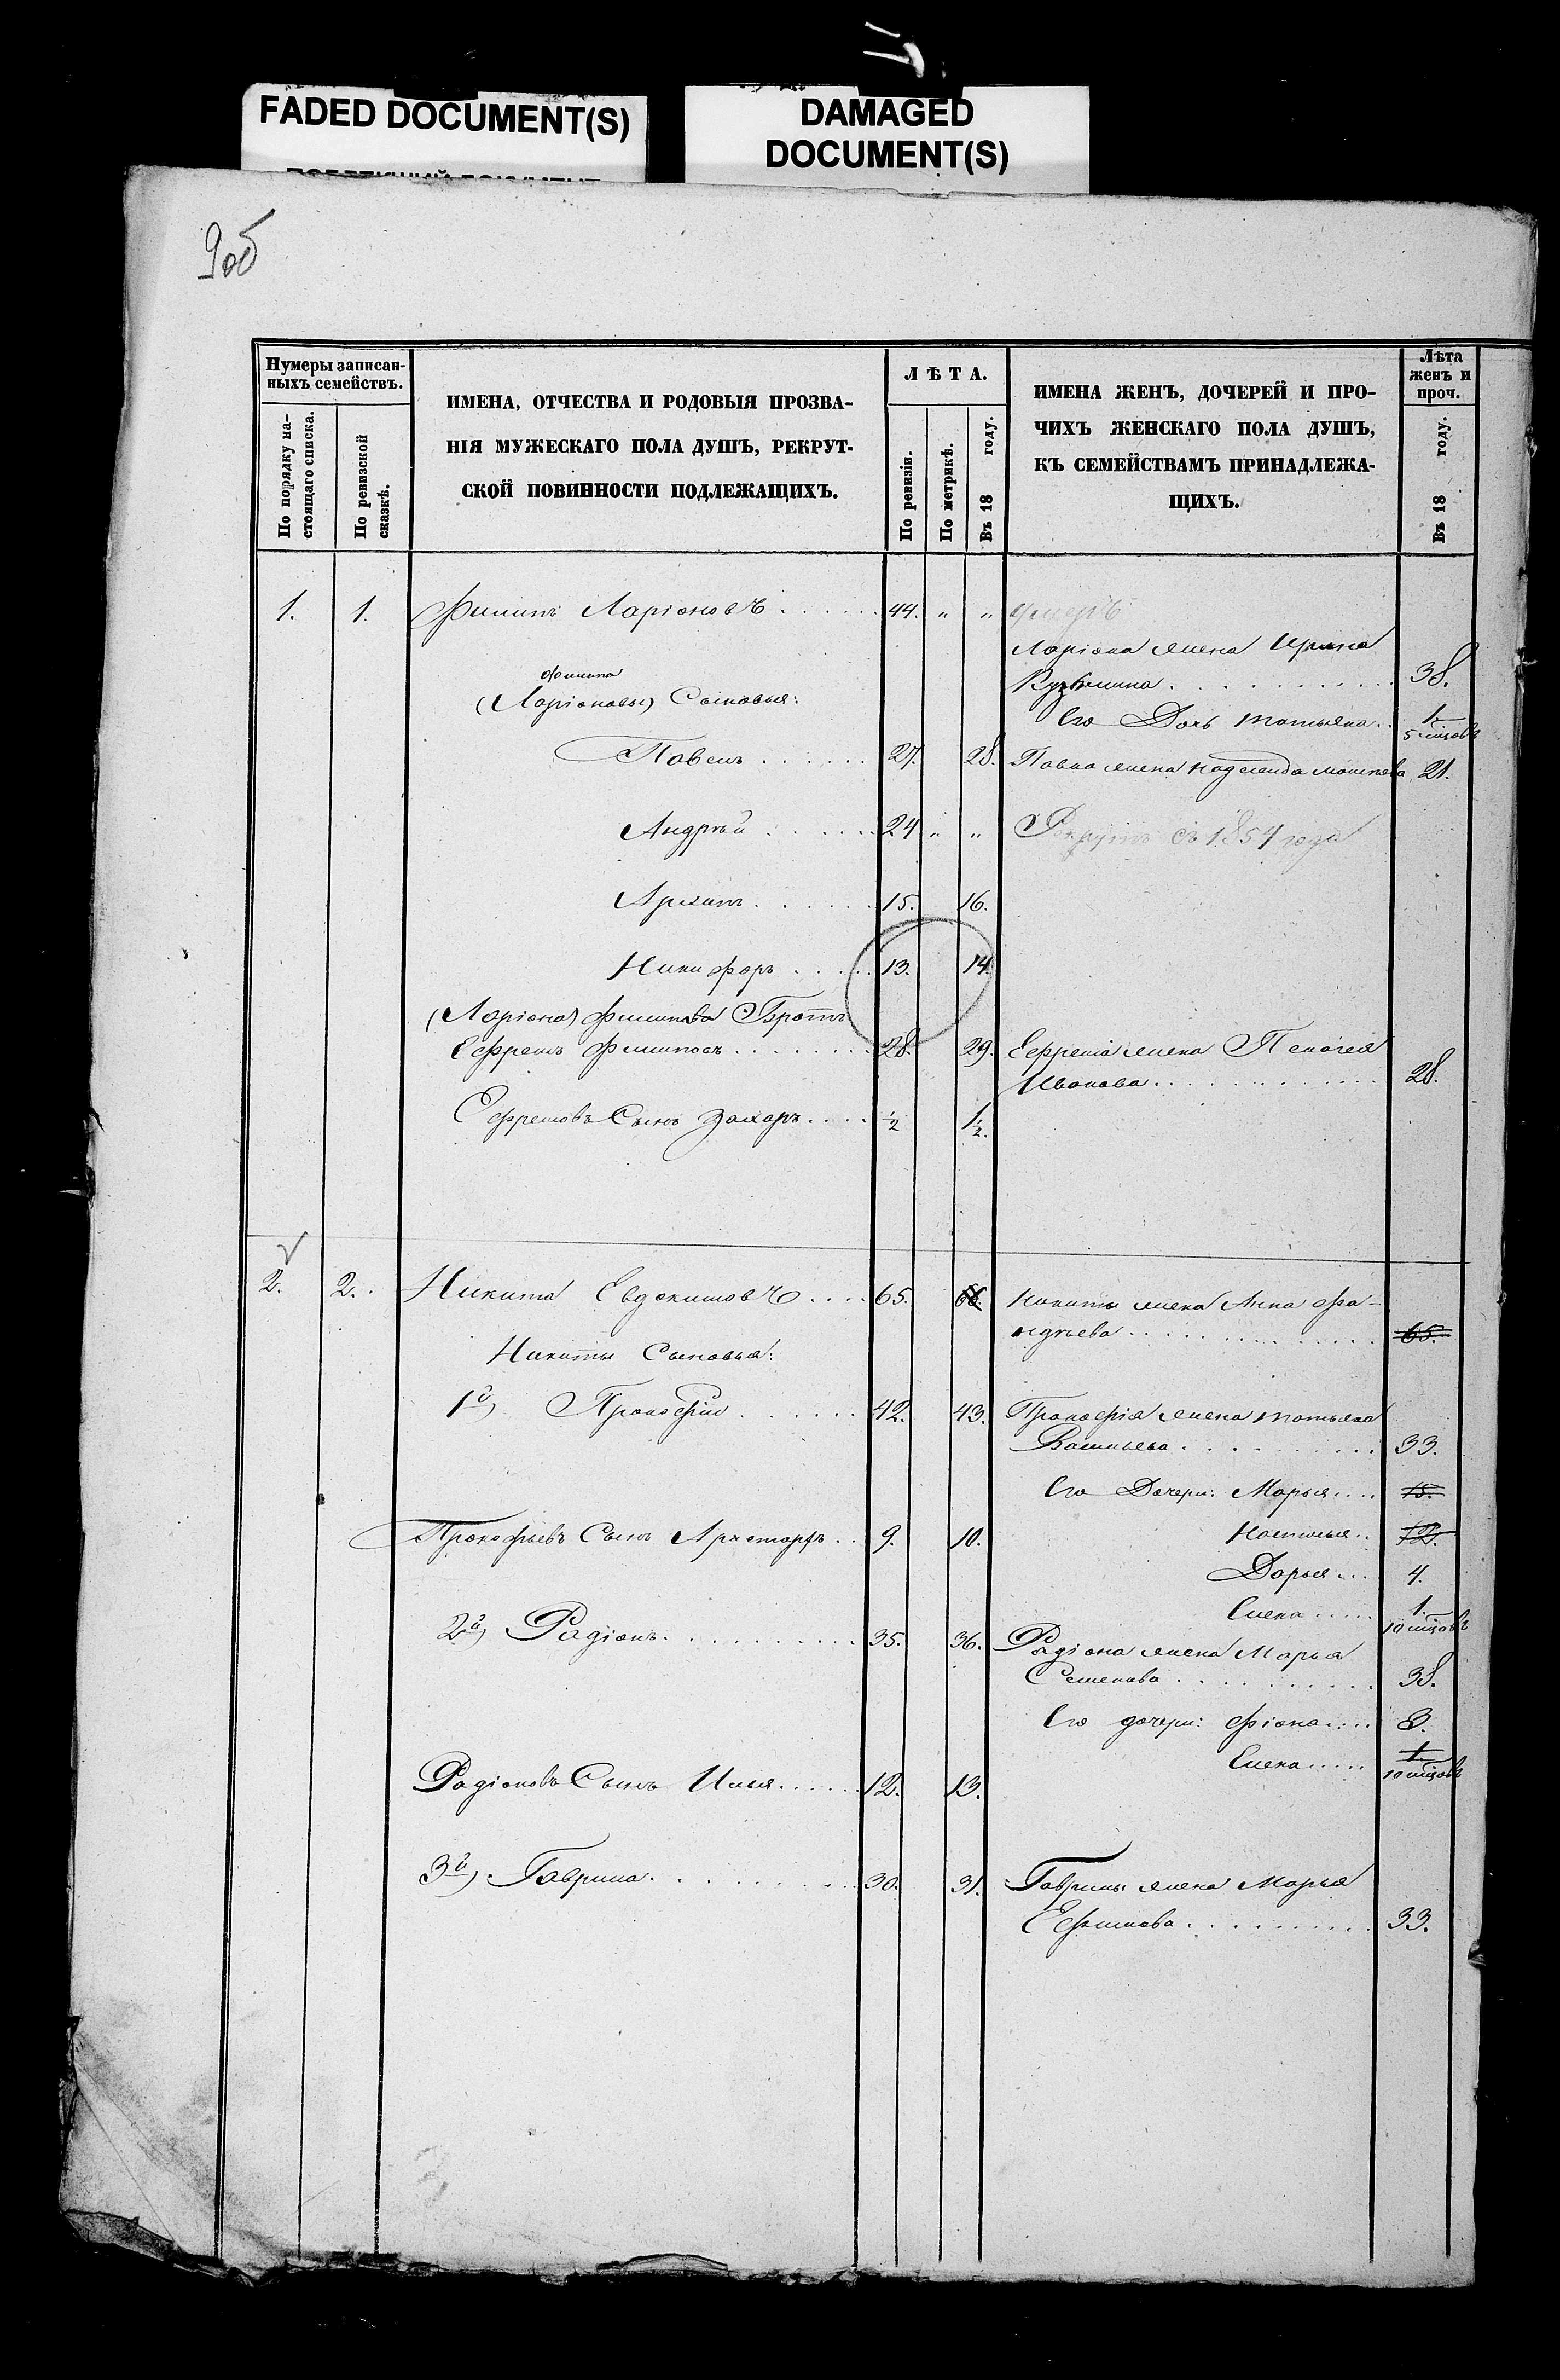 FADED DOCUMENT(S)
DAMAGED
DOCUMENT(S)
9об
Нумеры записан-
ныхъ семействъ.
По порядку на-
стоящаго списка.
По ревизской
сказкѣ.
ИМЕНА, ОТЧЕСТВА И РОДОВЫЯ ПРОЗВА-
НІЯ МУЖЕСКАГО ПОЛА ДУШЪ, РЕКРУТ-
СКОЙ ПОВИННОСТИ ПОДЛЕЖАЩИХЪ.
ЛѢТА.
По ревизіи.
По метрикѣ.
Въ 18 году.
ИМЕНА ЖЕНЪ, ДОЧЕРЕЙ И ПРО-
ЧИХЪ ЖЕНСКАГО ПОЛА ДУШЪ,
КЪ СЕМЕЙСТВАМЪ ПРИНАДЛЕЖА-
ЩИХЪ.
Лѣта
женъ и
проч.
Въ 18 году.
1. 1. Филипъ Ларіоновъ . . . . . . 44. " " умеръ
Ларіона жена Ирина
Кузьмина . . . . . . . . . . . 38.
Филипа
(Ларіоновы) Сыновья:
Его Дочь Татьяна . . 1. 5 мцовъ
Павелъ . . . . . . 27. 28. Павла жена Надежда 21.
Андрей . . . . . . 24 " " Рекрутъ съ 1854 года
Архипъ . . . . . . 15. 16.
Никифоръ . . . . . 13. 14
(Ларіона) Филипова Братъ
Ефремъ Филиповъ . . . . . . . . 28. 29. Ефрема жена Пелагея
Иванова . . . . . . . . . . . . 28.
Ефремовъ Сынъ Захаръ . . . . 1/2 1 1/2.
2. 2. Никита Евдокимовъ . . . . 65. 66. Никиты жена Анна Фа-
дѣева . . . . . . . . . . . . . 65.
Никиты Сыновья:
1й) Прокофій . . . . . . 42. 43. Прокофія жена Татьяна
Васильева . . . . . . . . . . 33.
Его Дочери: Марья . . . . 15.
Прокофьевъ Сынъ Аристархъ . . 9. 10. Наталья . . 12.
Дарья . . . 4.
Елена . . . . . 1. 10 мцовъ
2й) Радіонъ . . . . . . . . . . 35. 36. Радіона жена Марья
Семенова . . . . . . . . . . . 38.
Его дочери: Фіона . . . . 3.
Елена . . . . . 1. 10 мцовъ
Радіоновъ Сынъ Илья . . . . . . 12. 13.
3й) Гаврила . . . . . . . . . . 30. 31. Гаврилы жена Марья
Ефимова . . . . . . . . . . 33.